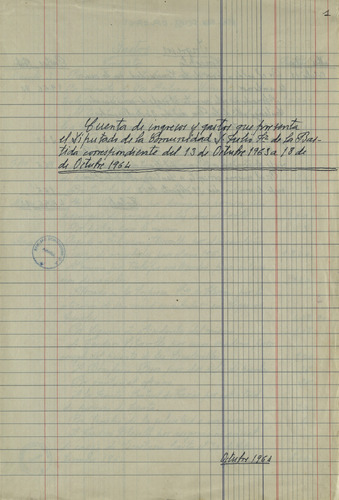 1
Cuenta de ingresos y gastos que presenta
el Diputado de la Comunidad D. Jesús Fz. de La Bas-
tida correspondiente del 13 de Octubre 1963 a 18 de
de Octubre 1964
Octubre 1964